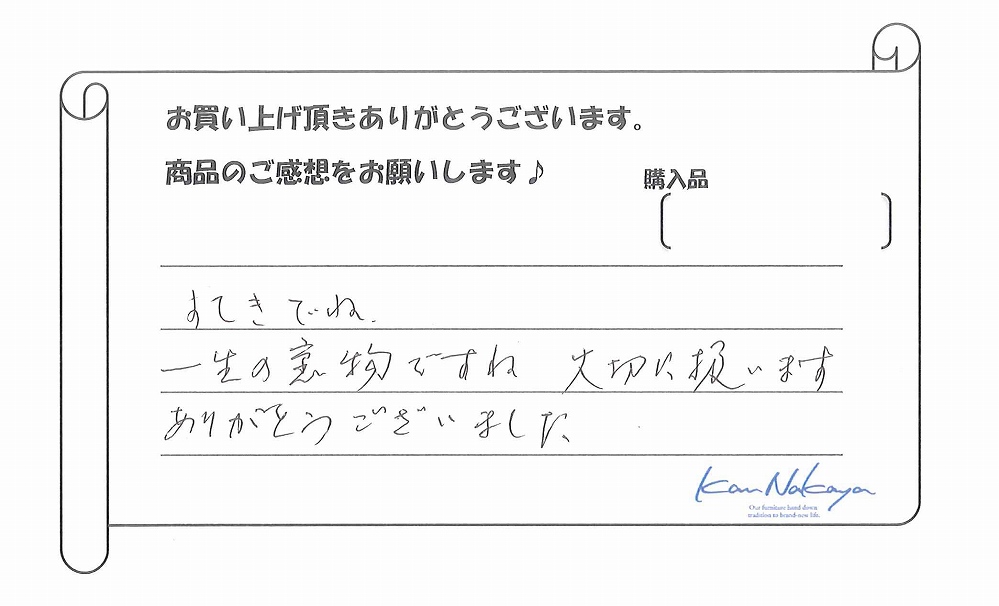 お買い上げ頂きありがとうございます。
商品のご感想をお願いします♪
購入品
すてきでね.
一生の宝物ですね 大切に扱います
ありがとうございました
Kan Nakaya
Our furniture hand down
tradition to brand-new life.